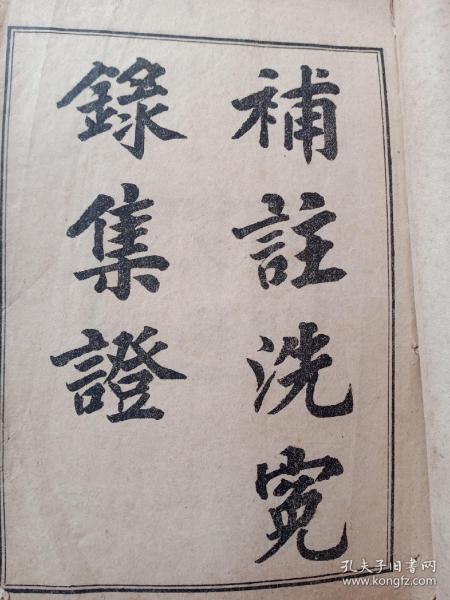 補註洗寃
錄集證
孔夫子旧书网
www.kongfz.com